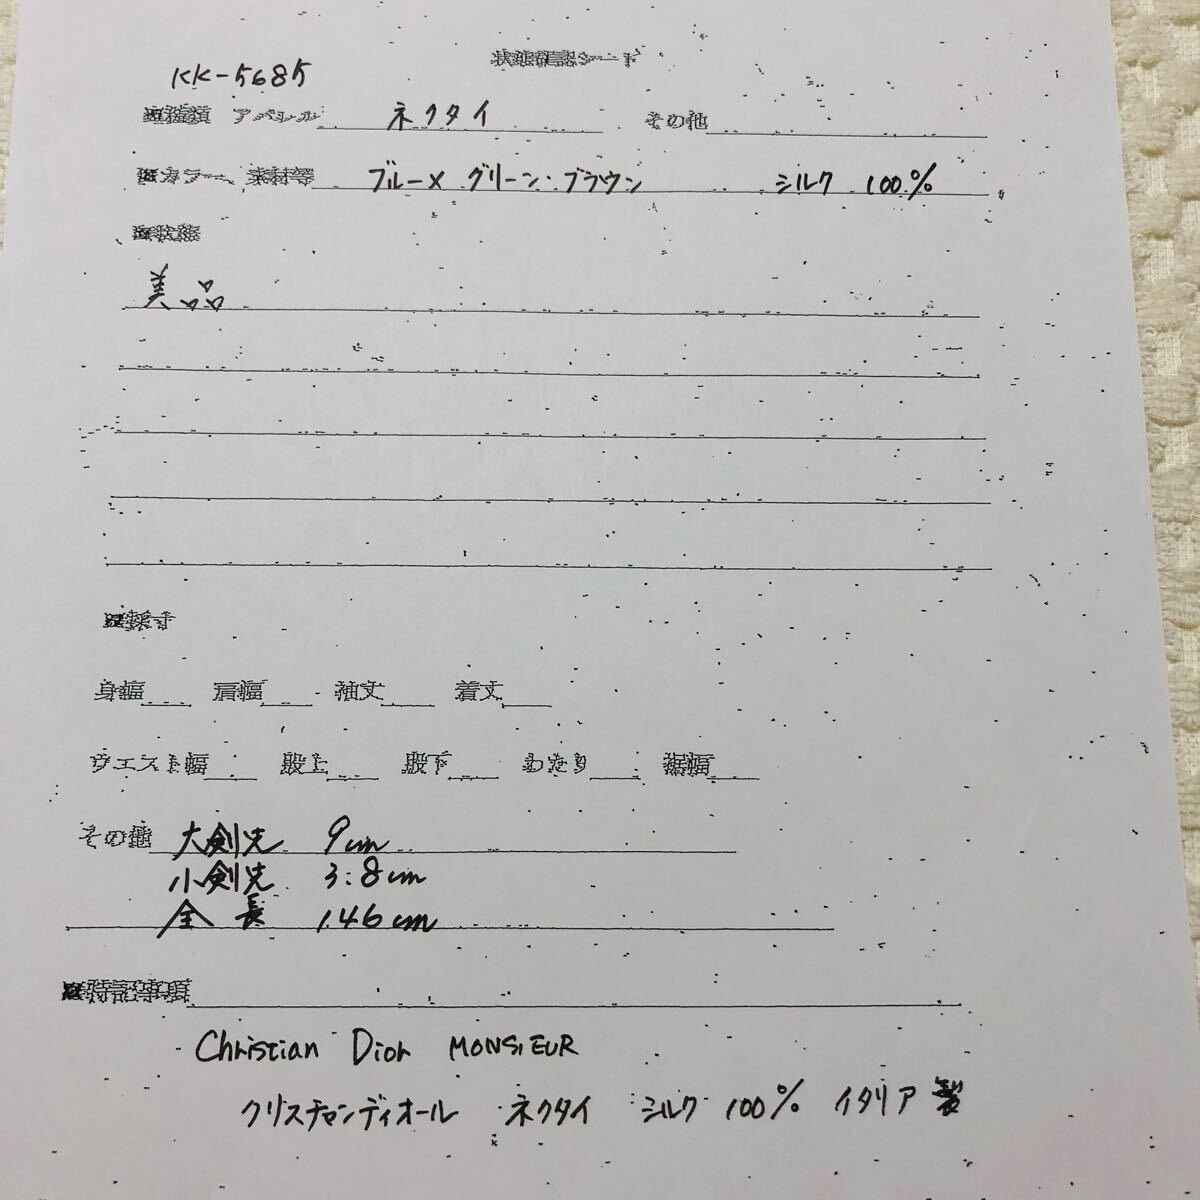 状態確認シート
KK-5685
※種類 アパレル ネクタイ その他
※カラー、素材等 ブルー× グリーン・ブラウン シルク 100%
※状態
美品
※採寸
身幅 肩幅 袖丈 着丈
ウエスト幅 股上 股下 わたり 裾幅
その他 大剣先 9cm
小剣先 3.8cm
全長 146cm
※特記事項
Christian Dior MONSIEUR
クリスチャンディオール ネクタイ シルク 100% イタリア製